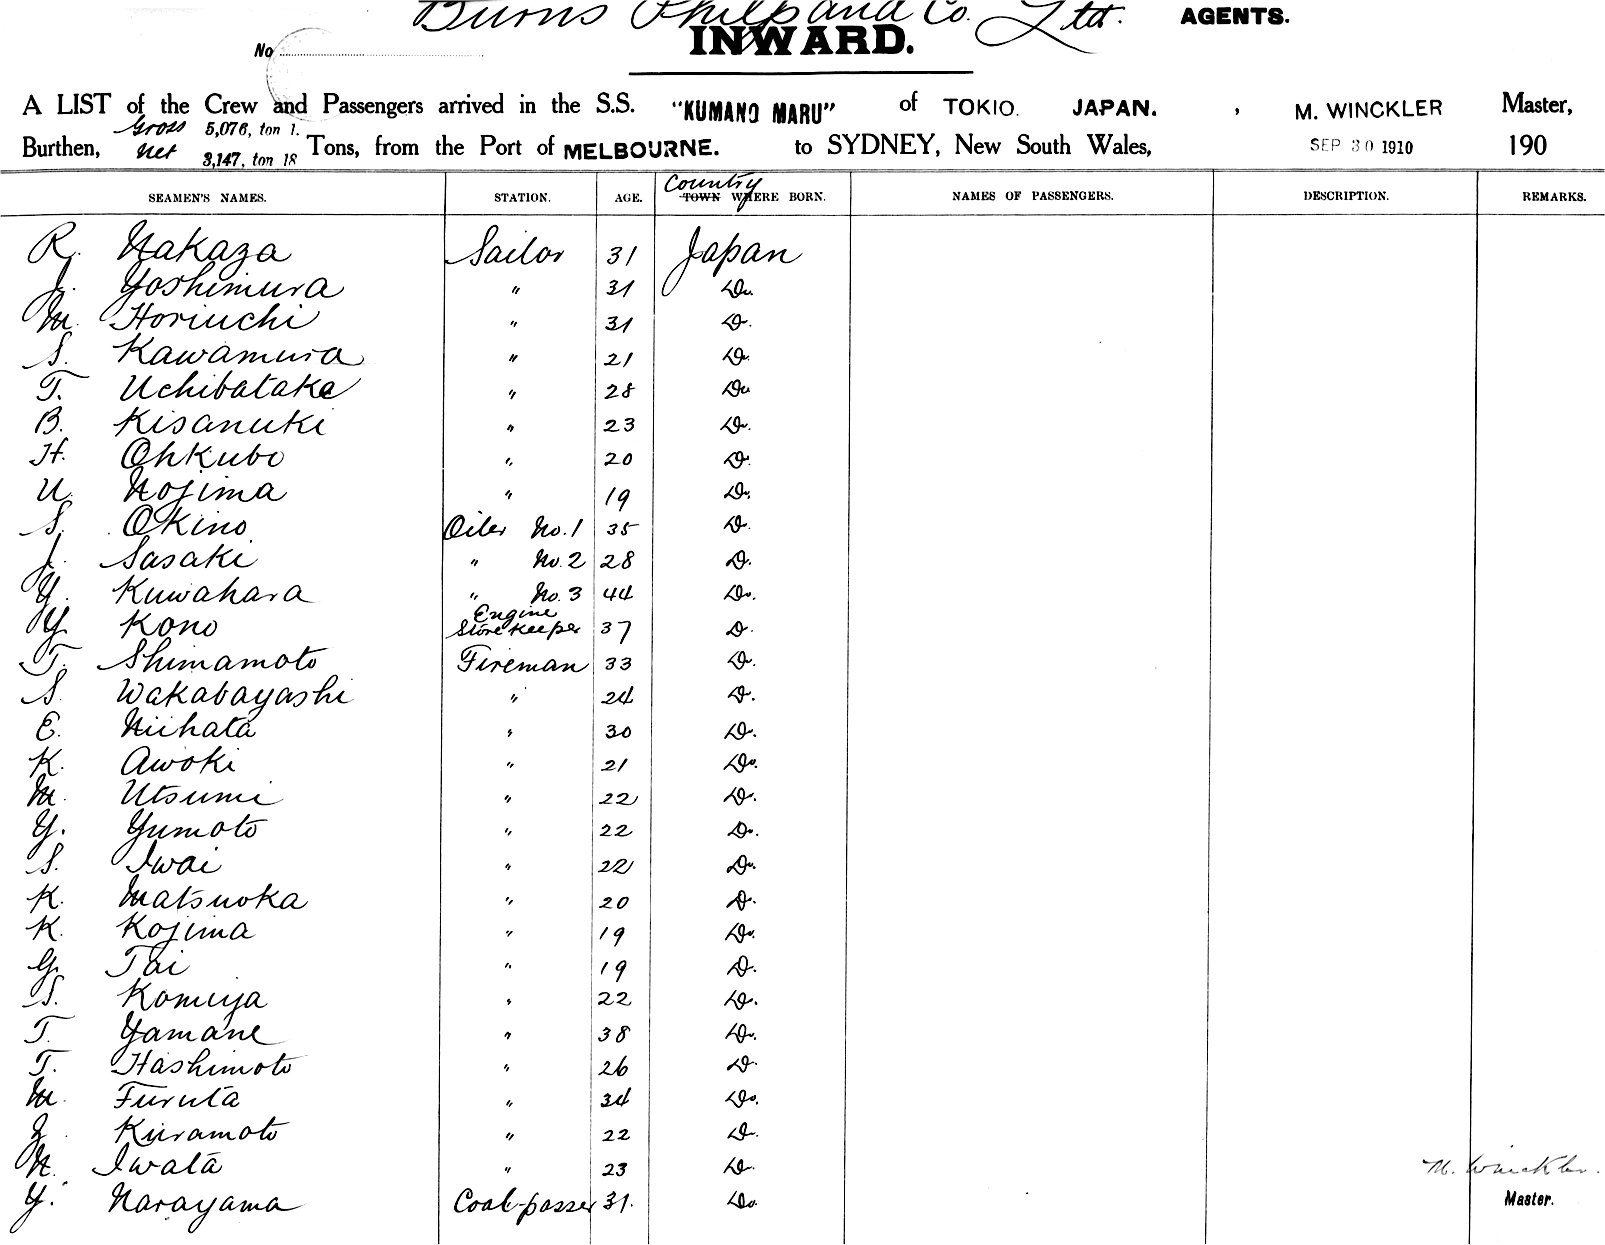 Burns Philp and Co. Ltd. AGENTS.
INWARD.
No
A LIST of the Crew and Passengers arrived in the S.S. "KUMANO MARU" of TOKIO. JAPAN. , M. WINCKLER Master,
Burthen, Gross 5,076, ton 1.
Net 3,147, ton 18 Tons, from the Port of MELBOURNE. to SYDNEY, New South Wales, SEP 30 1910 190
SEAMEN'S NAMES. STATION. AGE. Country TOWN WHERE BORN. NAMES OF PASSENGERS. DESCRIPTION. REMARKS.
R. Nakaza Sailor 31 Japan
J. Yoshimura " 31 Do.
M. Horiuchi " 31 Do.
S. Kawamura " 21 Do.
T. Uchibatake " 28 Do
B. Kisanuki " 23 Do.
H. Ohkubo " 20 Do.
U. Nojima " 19 Do.
S. Okino Oiler No. 1 35 Do.
J. Sasaki " No. 2 28 Do.
Y. Kuwahara " No. 3 44 Do.
Y. Kono Engine Storekeeper 37 Do.
T. Shimamoto Fireman 33 Do.
S. Wakabayashi " 24 Do.
E. Niihata " 30 Do.
K. Awoki " 21 Do.
M. Utsumi " 22 Do.
Y. Yumoto " 22 Do.
S. Iwai " 22 Do.
K. Matsuoka " 20 Do.
K. Kojima " 19 Do.
G. Tai " 19 Do.
S. Komiya " 22 Do.
T. Yamane " 38 Do.
T. Hashimoto " 26 Do.
M. Furuta " 34 Do.
Z. Kuramoto " 22 Do.
N. Iwata " 23 Do.
M. Winckler.
Y. Narayama Coal-passer 31. Do.
Master.